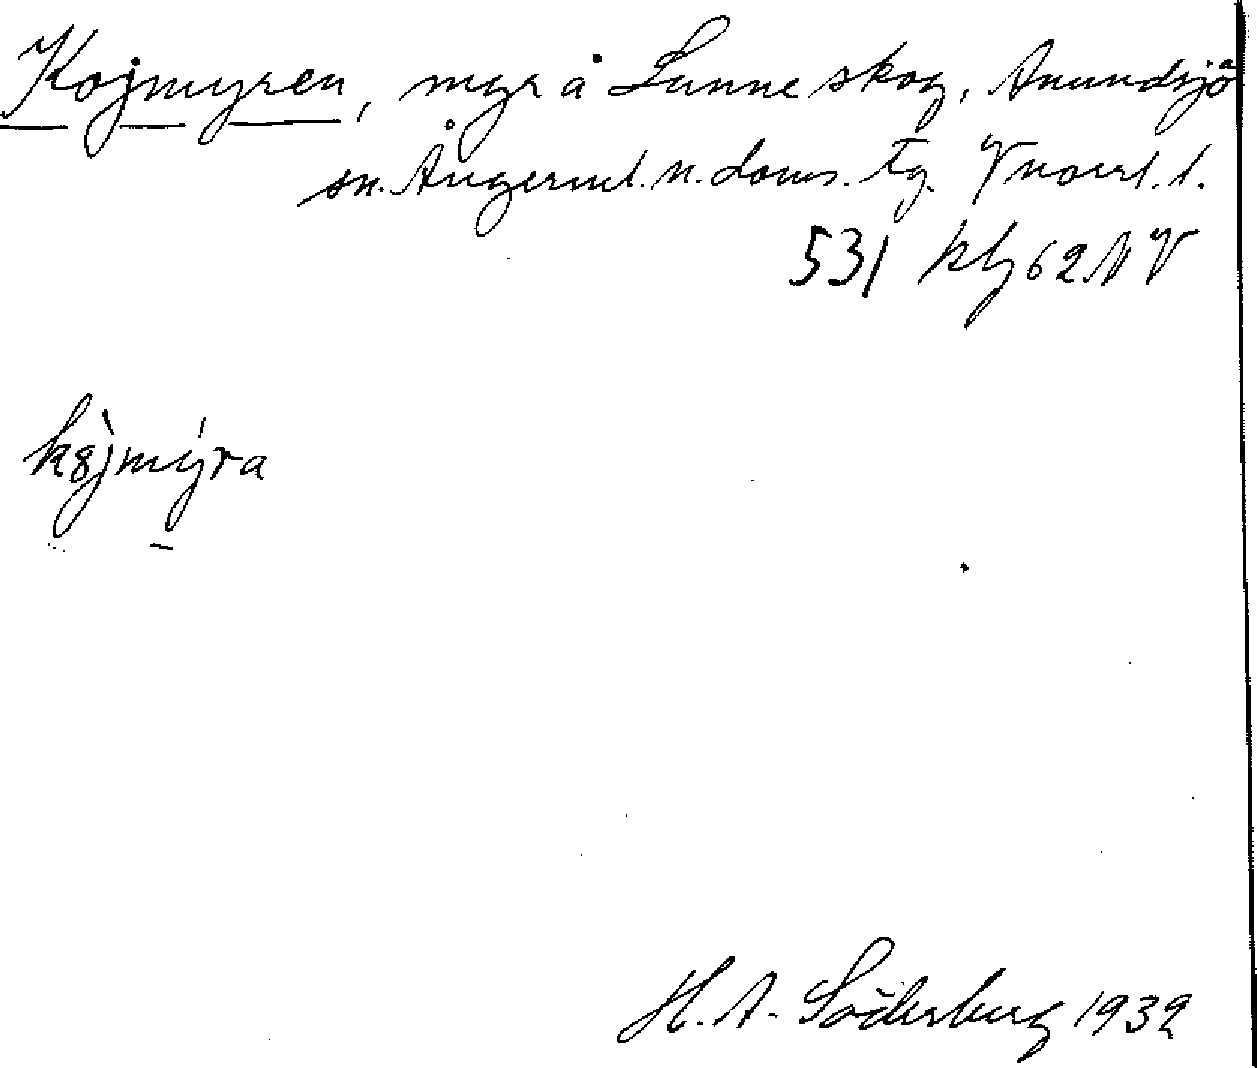 Kojmyren, myr å Sunne skog, Anundsjö
sn. Ångerml. n. doms. tg. Vnorrl. l.
531 kbj 62 NV
kåjmýra
H. A. Söderberg 1932